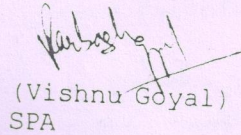 (Vishnu Goyal)
SPA